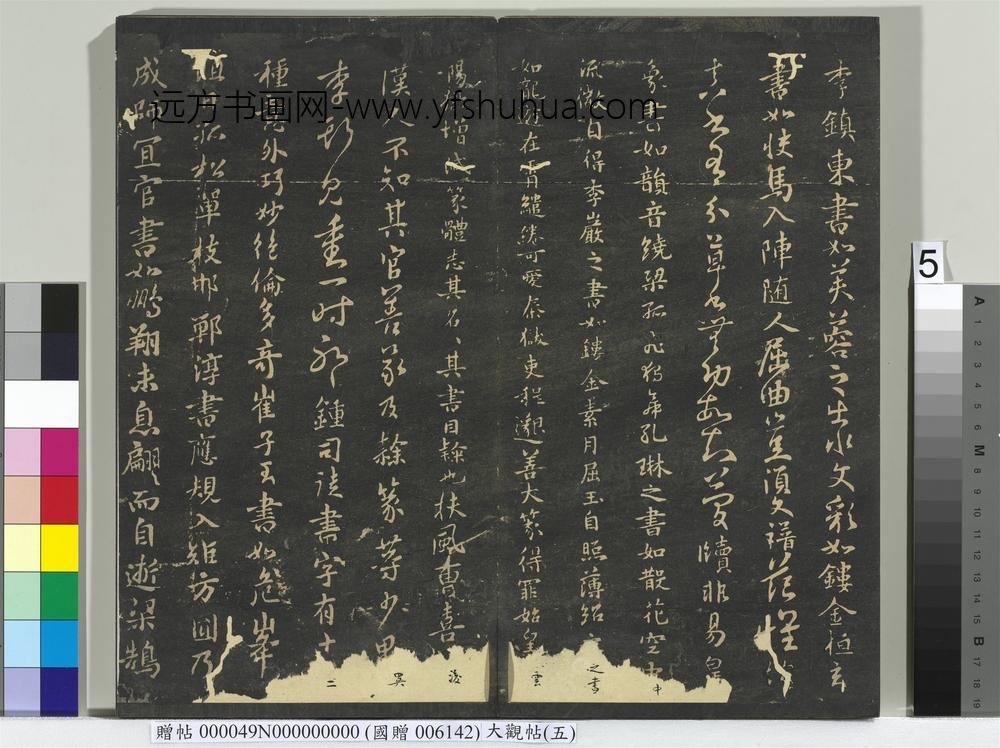 李鎮東書如芙蓉之出水文彩如鏤金桓玄
書如快馬入陣随人屈曲豈須文譜范懷
牘非易皇
象書如韻音繞梁孤飛獨舞孔琳之書如散花空中
流徽自得李巖之書如鏤金素月屈玉自照薄紹之書
如龍遊在霄繾綣可愛秦獄吏程邈善大篆得罪始皇雲
陽增減篆體志其名其書曰隸也扶風曹喜後
漢人不知其官善篆及隸篆葉少異
李斯見重一時耶鍾司徒書字有十二
種意外巧妙絶倫多奇崔子玉書如危峯
阻日孤松單枝邯鄲淳書應規入矩方圓乃
成師宜官書如鵬翔未息翩翩而自逝梁鵠
远方书画网-www.yfshuhua.com
5
A 1 2 3 4 5 6 M 8 9 10 11 12 13 14 15 B 17 18 19
贈帖 000049N000000000 (國贈 006142) 大觀帖(五)